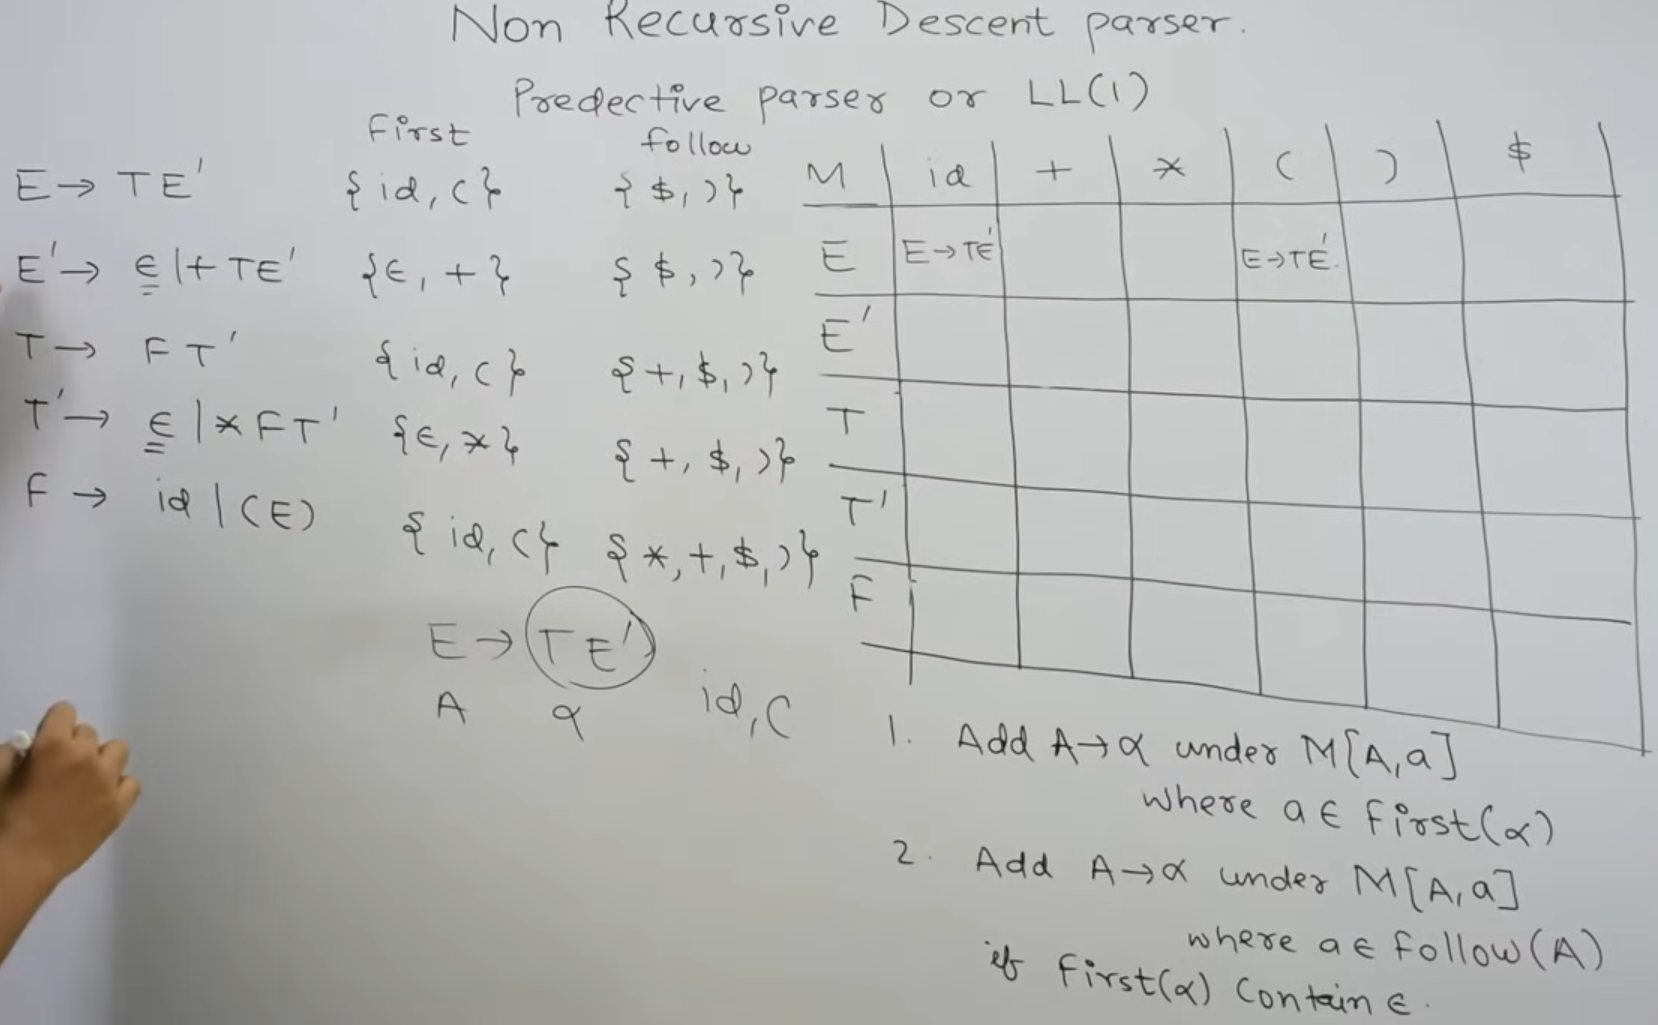 Non Recursive Descent parser.
Predective parser or LL(1)
First follow
E → TE' { id, ( } { $, ) }
E' → ∈ | + TE' { ∈, + } { $, ) }
T → FT' { id, ( } { +, $, ) }
T' → ∈ | * FT' { ∈, * } { +, $, ) }
F → id | (E) { id, ( } { *, +, $, ) }
E → TE'
A α id, (
M id + * ( ) $
E E→TE' E→TE'.
E'
T
T'
F
1. Add A→α under M[A,a]
where a ∈ First(α)
2. Add A→α under M[A,a]
where a ∈ follow(A)
if First(α) Contain ∈.